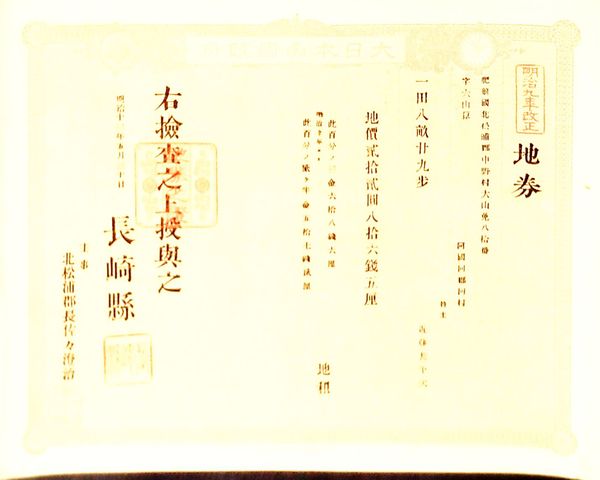 大日本帝國政府
明治九年改正
地券
肥前國北松浦郡中野村大山免八拾番
字六山原
同國同郡同村
持主
一田八畝廿九步
地價貳拾貳圓八拾六錢五厘
此百分ノ三 金六拾八錢六厘
地租
明治十年ヨリ
此百分ノ貳ヶ半 金五拾七錢貳厘
右撿査之上授與之
明治十一年五月三十日
長崎縣
主事
北松浦郡長佐々澄治